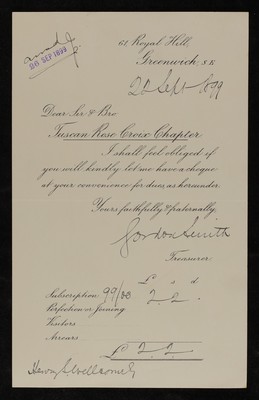 26 SEP 1899
61 Royal Hill,
Greenwich, S.E
22 Sept 1899
Dear Sir & Bro
Tuscan Rose Croix Chapter
I shall feel obliged if
you will kindly let me have a cheque
at your convenience for dues, as hereunder.
Yours faithfully & fraternally,
Gordon Smith
Treasurer.
£ s d
Subscription 99/00 2 2 .
Perfection or Joining
Visitors
Arrears
£ 2 2
Henry S Wellcome Esq